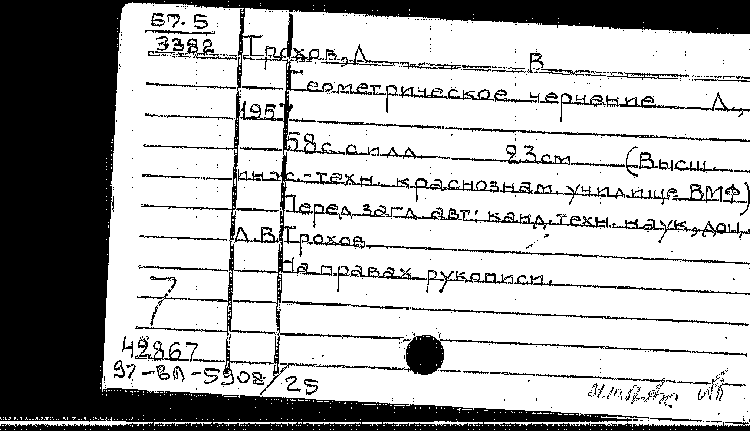 Б7.5
3382
Трохов, Л В
Геометрическое черчение Л.,
1957
58с с илл. 23см (Высш.
инж.-техн. краснознам. училище ВМФ)
Перед загл. авт: канд. техн. наук, доц.
Л.В. Трохов
На правах рукописи.
7
42867
92-ВЛ-5908/25